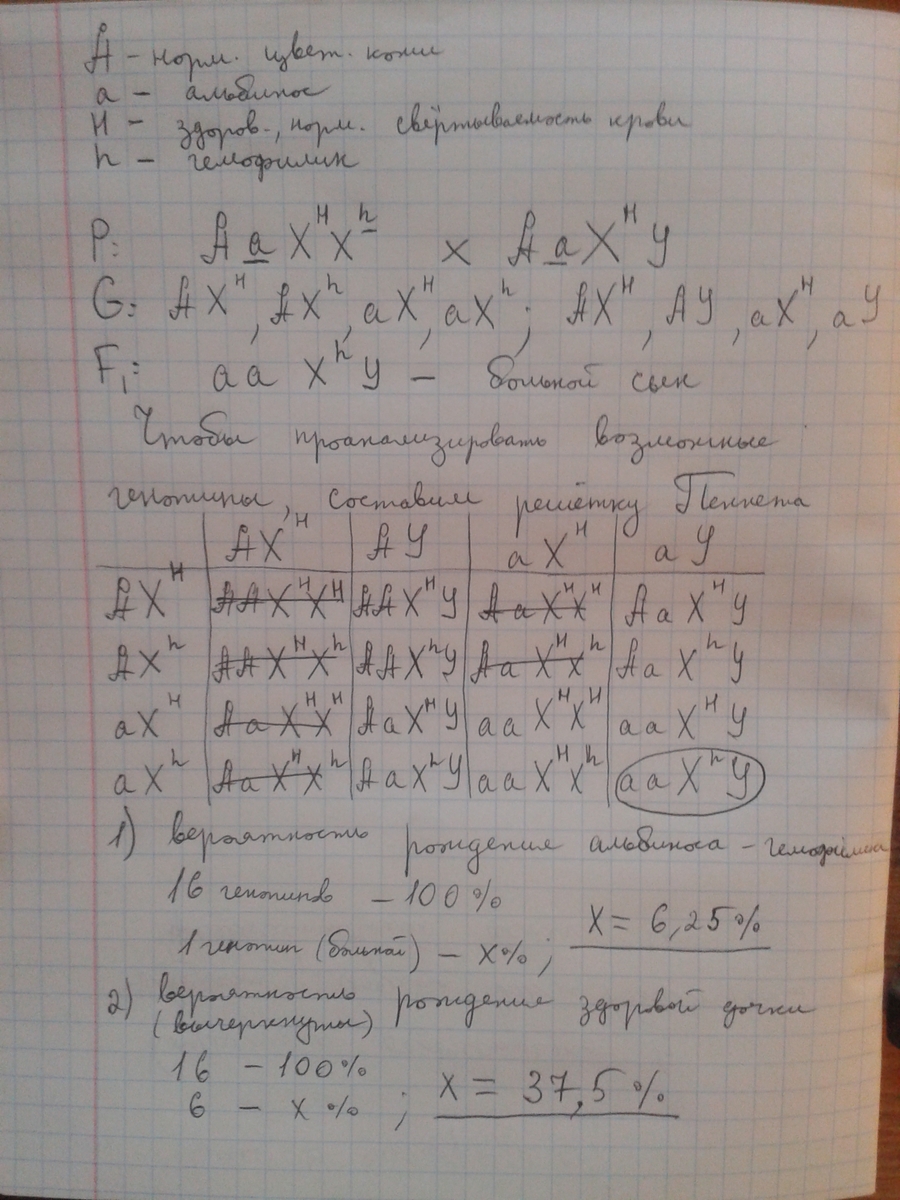 А – норм. цвет. кожи
а – альбинос
H – здоров., норм. свёртываемость крови
h – гемофилик
P: АаXᴴXʰ × АаXᴴY
G: АXᴴ, АXʰ, аXᴴ, аXʰ; АXᴴ, АY, аXᴴ, аY
F₁: аа XʰY – больной сын
Чтобы проанализировать возможные
генотипы, составим решётку Пеннета
АXᴴ АY аXᴴ аY
АXᴴ ААXᴴXᴴ ААXᴴY АаXᴴXᴴ АаXᴴY
АXʰ ААXᴴXʰ ААXʰY АаXᴴXʰ АаXʰY
аXᴴ АаXᴴXᴴ АаXᴴY ааXᴴXᴴ ааXᴴY
аXʰ АаXᴴXʰ АаXʰY ааXᴴXʰ ааXʰY
1) вероятность рождение альбиноса – гемофилика
16 генотипов – 100%
1 генотип (больной) – X%; X = 6,25%
2) вероятность рождение здоровой дочки
(вычеркнуты)
16 – 100%
6 – X %; X = 37,5 %